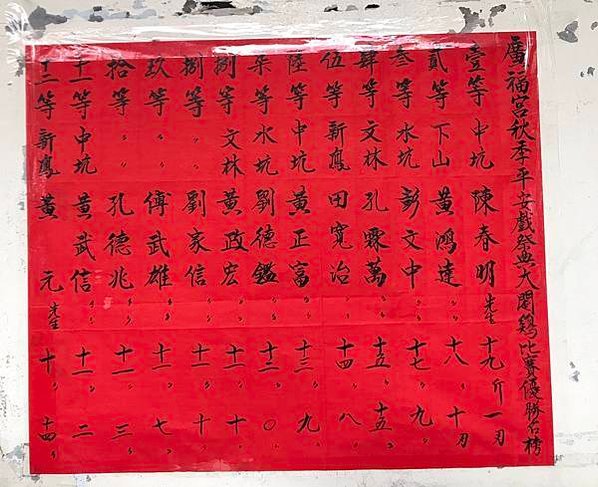 廣福宮秋季平安戲祭典大閹鷄比賽優勝名榜
壹等 中坑 陳春明 先生 十九斤一刃
貳等 下山 黃鴻達 〃〃 十八〃十刃
叁等 水坑 彭文中 〃〃 十七〃九〃
肆等 文林 孔霖萬 〃〃 十五〃十五〃
伍等 新鳳 田寬治 〃〃 十四〃八〃
陸等 中坑 黃正富 〃〃 十三〃九〃
柒等 水坑 劉德鑑 〃〃 十二〃〇〃
捌等 文林 黃政宏 〃〃 十一〃十〃
捌等 〃〃 劉豪信 〃〃 十一〃十〃
玖等 〃〃 傅武雄 〃〃 十一〃七〃
拾等 〃〃 孔德兆 〃〃 十一〃三〃
十一等 中坑 黃武信 〃〃 十一〃二〃
十二等 新鳳 黃元 先生 十〃十四〃